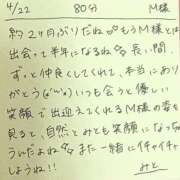 4/22 80分 M様
約2ヶ月ぶりだね♡もうM様とは
出会って半年になるね♡長い間、
ずっと仲良くしてくれて、本当にあり
がとう(*´ω`*)いつも会うと優しい
笑顔で出迎えてくれるM様の姿を
見ると、自然とみとも笑顔になっちゃ
うんだよね♡また一緒にイチャイチャ
しようね!!
みと